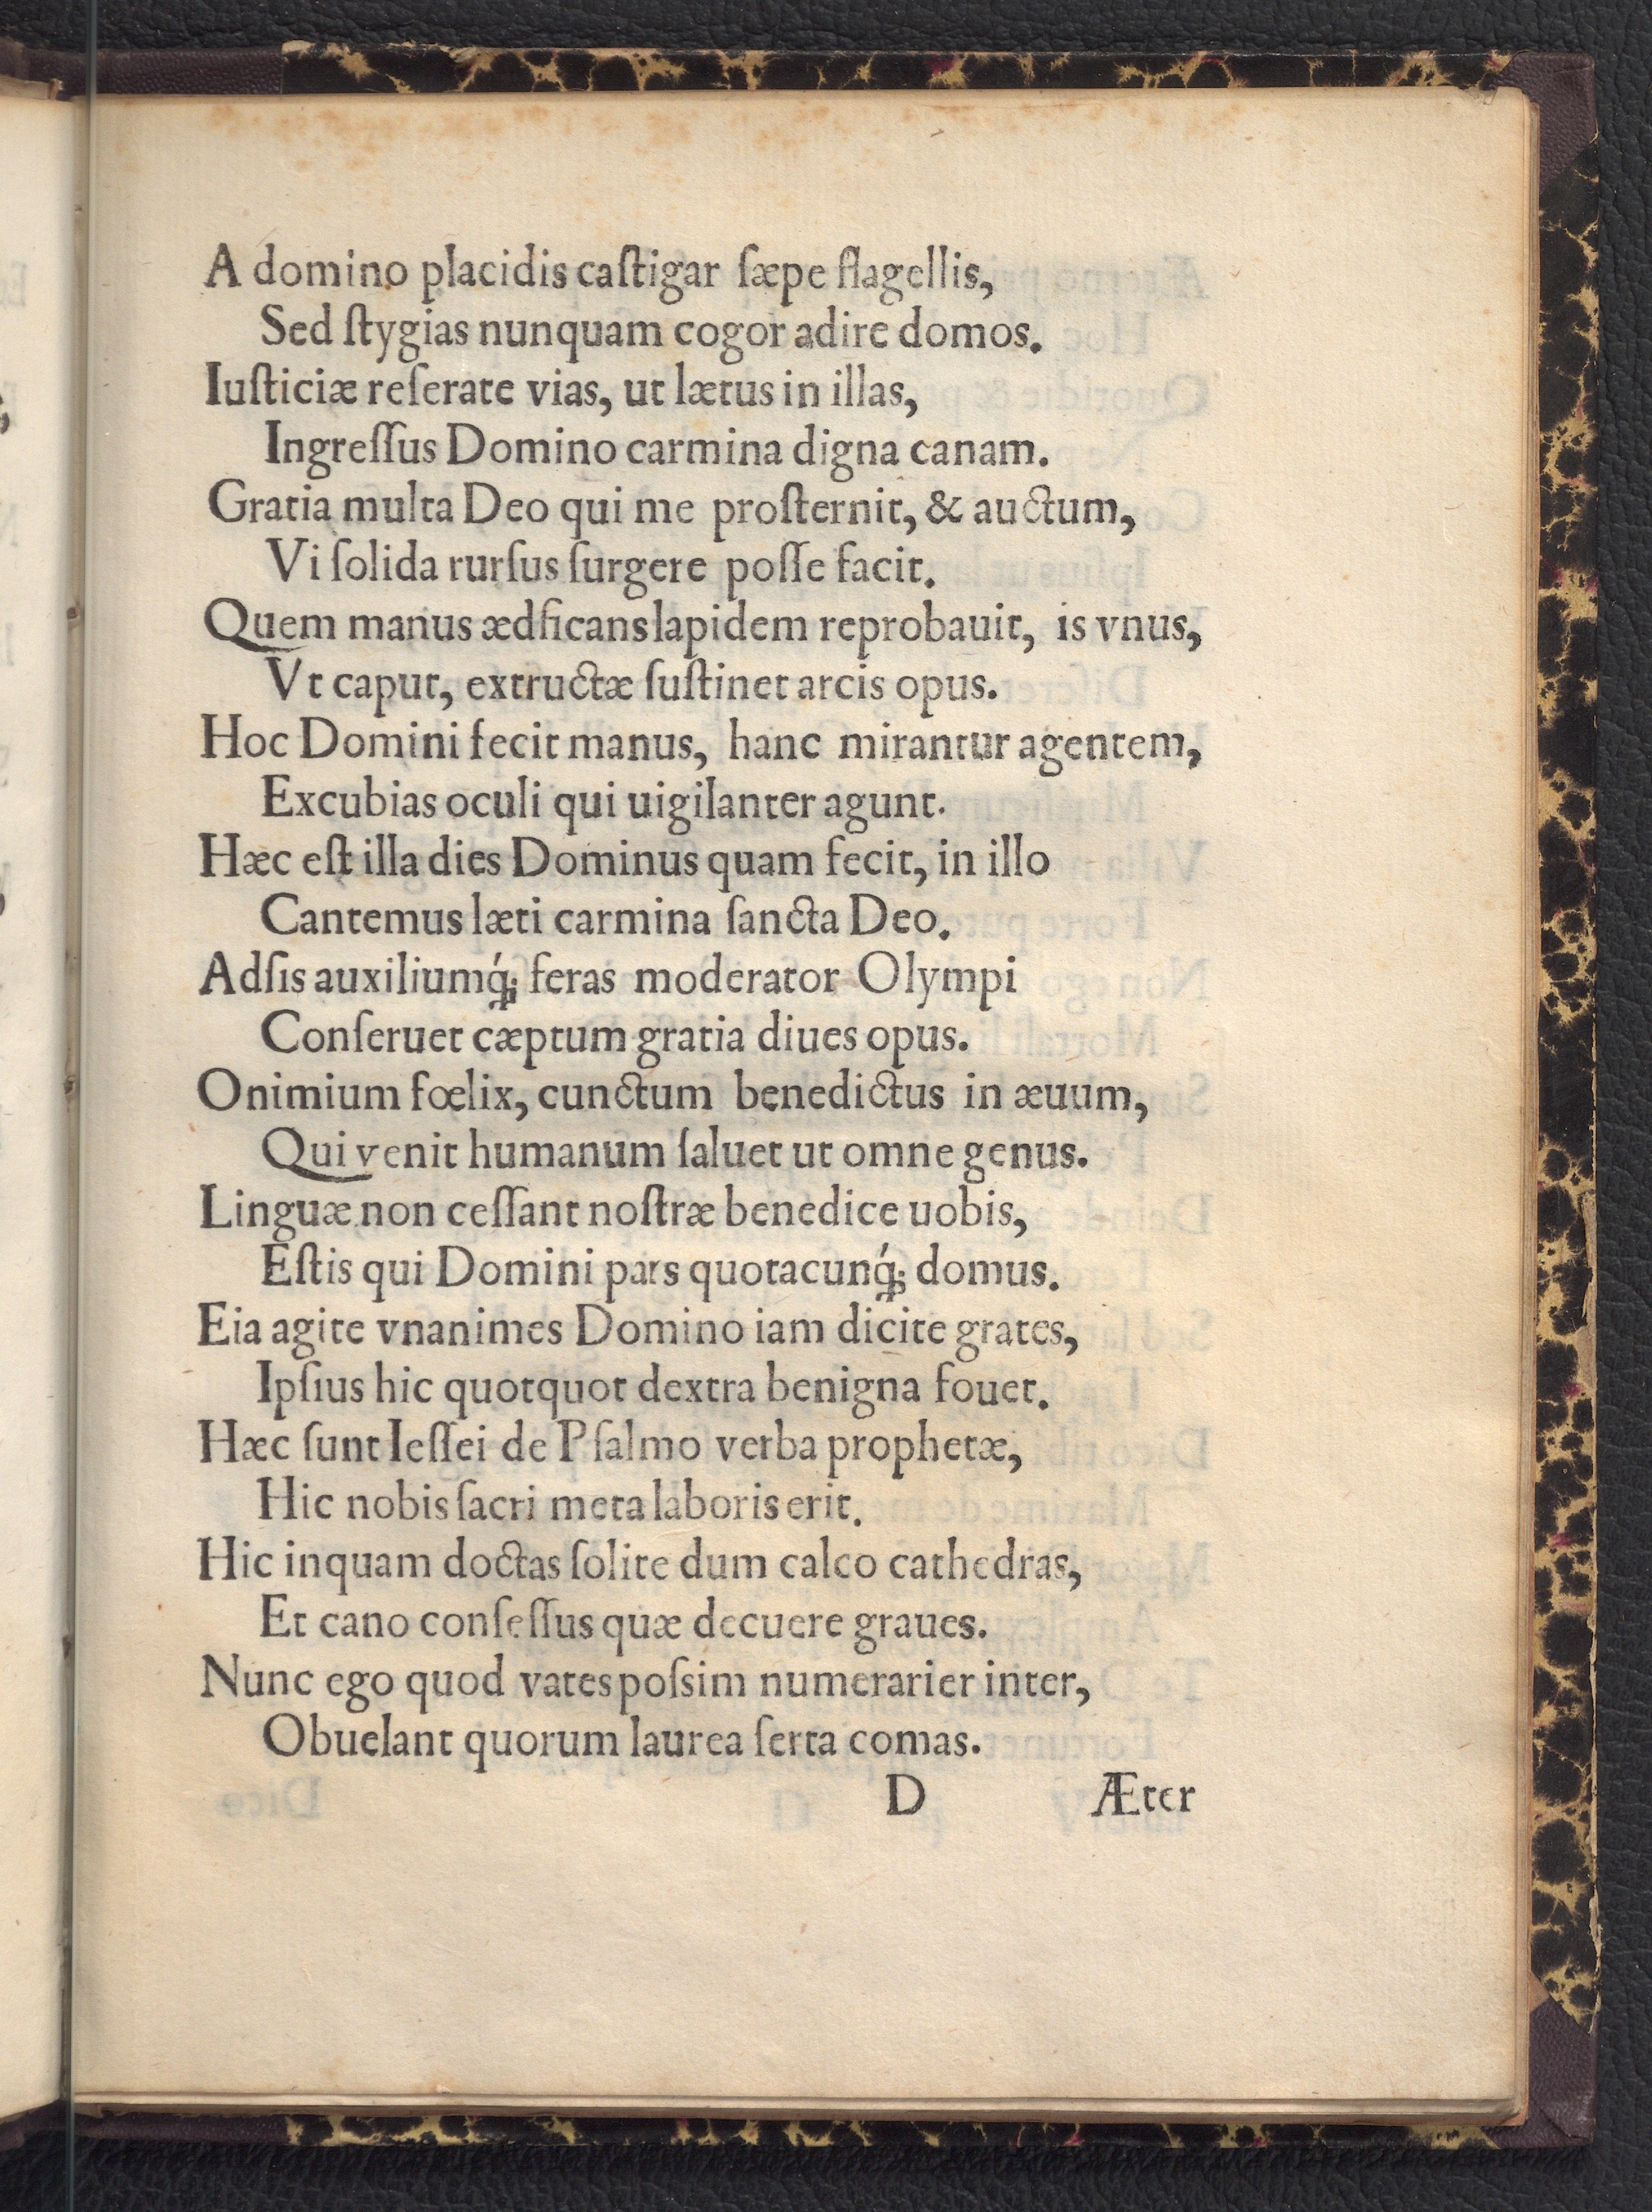 A domino placidis caſtigar ſæpe flagellis,
Sed ſtygias nunquam cogor adire domos.
Iuſticiæ reſerate vias, ut lætus in illas,
Ingreſſus Domino carmina digna canam.
Gratia multa Deo qui me proſternit, & auctum,
Vi ſolida rurſus ſurgere poſſe facit.
Quem manus ædficans lapidem reprobauit, is vnus,
Vt caput, extructæ ſuſtinet arcis opus.
Hoc Domini fecit manus, hanc mirantur agentem,
Excubias oculi qui uigilanter agunt.
Hæc eſt illa dies Dominus quam fecit, in illo
Cantemus læti carmina ſancta Deo.
Adſis auxiliumq́; feras moderator Olympi
Conſeruet cæptum gratia diues opus.
Onimium fœlix, cunctum benedictus in æuum,
Qui venit humanum ſaluet ut omne genus.
Linguæ non ceſſant noſtræ benedice uobis,
Eſtis qui Domini pars quotacunq́; domus.
Eia agite vnanimes Domino iam dicite grates,
Ipſius hic quotquot dextra benigna fouet.
Hæc ſunt Ieſſei de Pſalmo verba prophetæ,
Hic nobis ſacri meta laboris erit.
Hic inquam doctas ſolite dum calco cathedras,
Et cano conſeſſus quæ decuere graues.
Nunc ego quod vates poſsim numerarier inter,
Obuelant quorum laurea ſerta comas.
D Æter